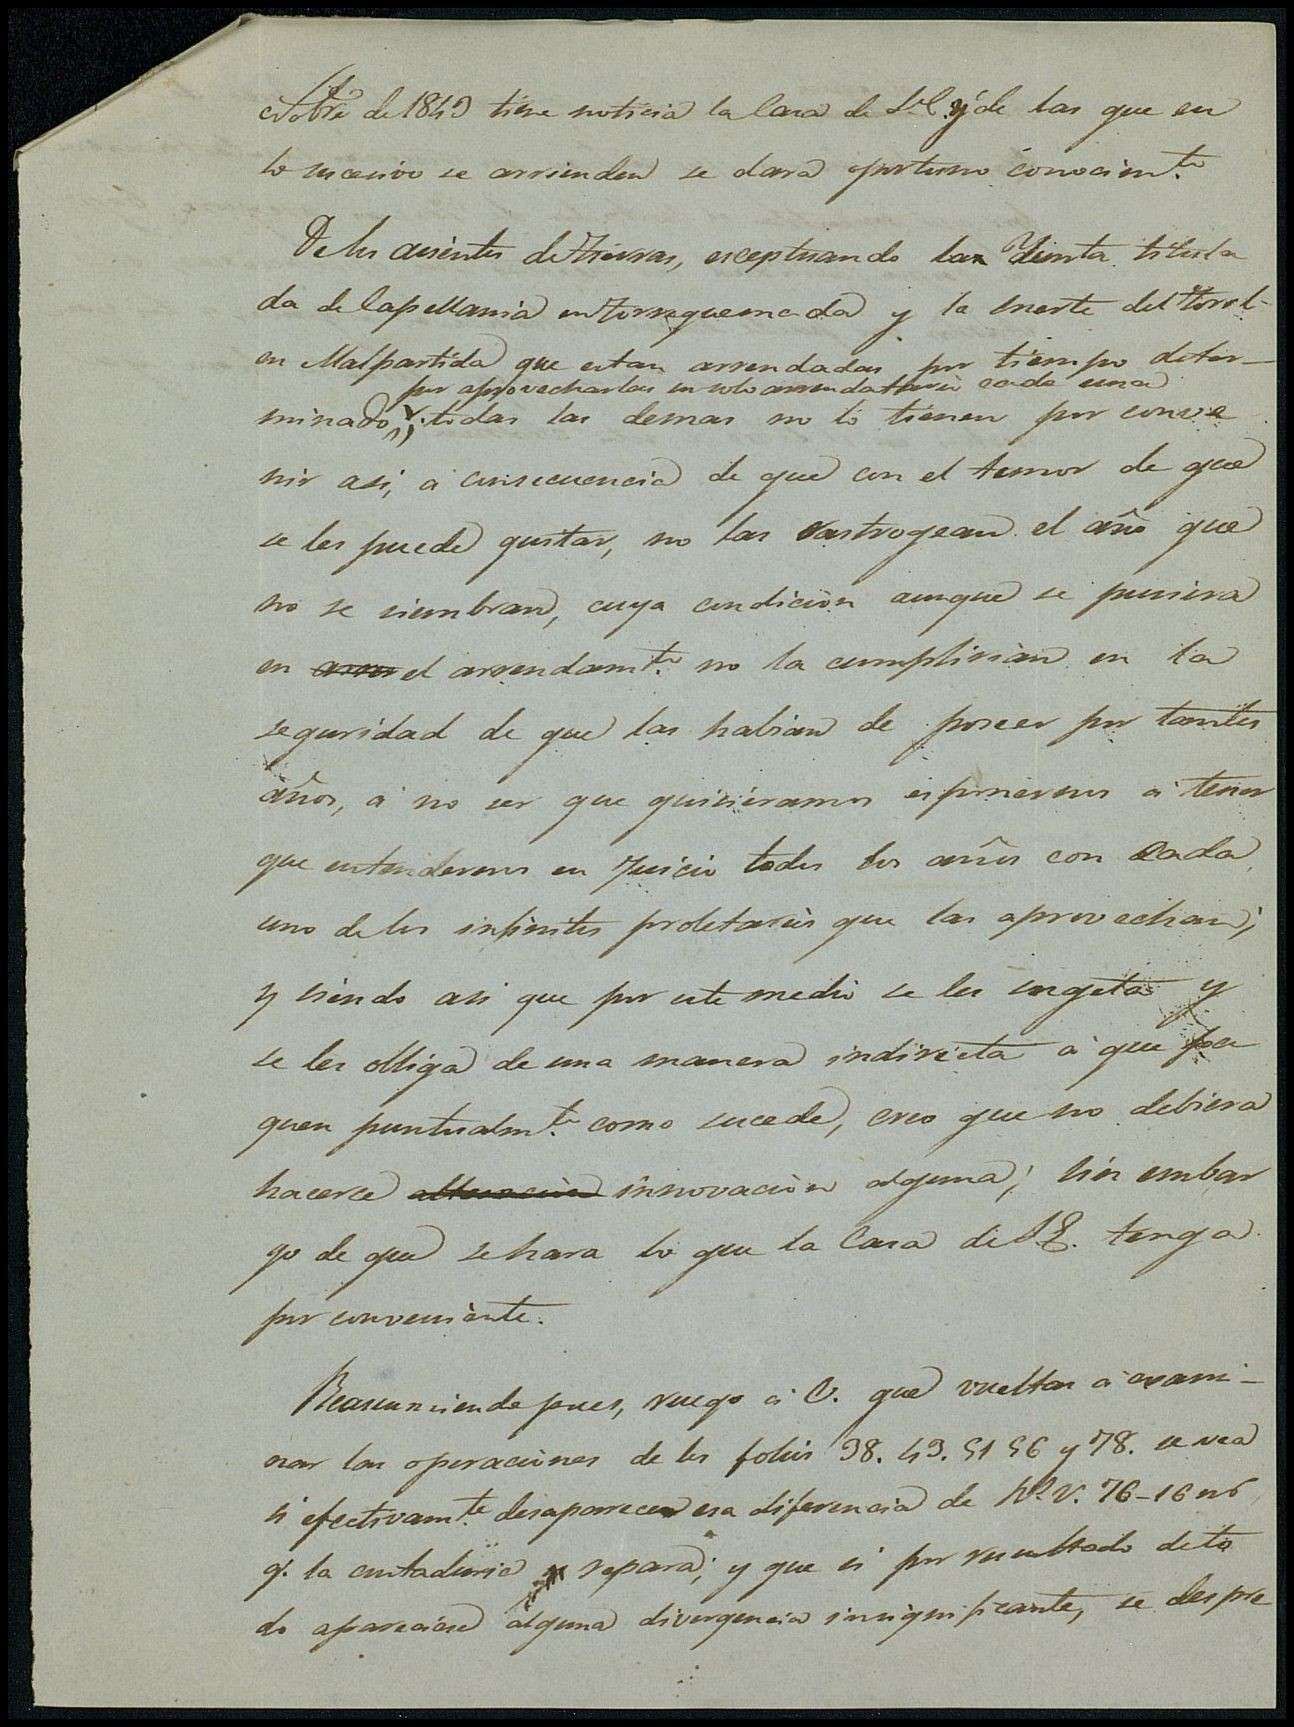 octbre de 1849 tiene noticia la Casa de S.E. y de las que en
lo sucesivo se arrienden se dara oportuno conocim.to
De los asientos de tierras, esceptuando la Yunta titula
da de Capellania en Torrequemada y la suerte del
en Malpartida que estan arrendadas por tiempo deter-
por aprovecharlas un solo arrendatario cada una
minado, todas las demas no lo tienen por conve
nir asi, á consecuencia de que con el temor de que
se les puede quitar, no las rastrogean el año que
no se siembran, cuya condicion aunque se pusiera
en el arrendam.to no la cumplirian en la
seguridad de que las habian de poseer por tantos
años, á no ser que quisieramos esponernos á tener
que entendernos en Juicio todos los años con cada
uno de los infinitos proletarios que las aprovechan;
y siendo asi que por este medio se les sugeta y
se les obliga de una manera indirecta á que pa
guen puntualm.te como sucede, creo que no debiera
hacerce alteracion innovacion alguna; sin embar
go de que se hara lo que la Casa de S.E. tenga
por conveniente.
Reasumiendo pues, ruego á V. que vueltas á exami-
nar las operaciones de los folios 38. 49. 51 56 y 78. se vea
si efectivam.te desaparece esa diferencia de R.s V. 76-16 ms
q.e la contaduria repara; y que si por resultado de to
do apareciese alguna divergencia insignificante, se despre